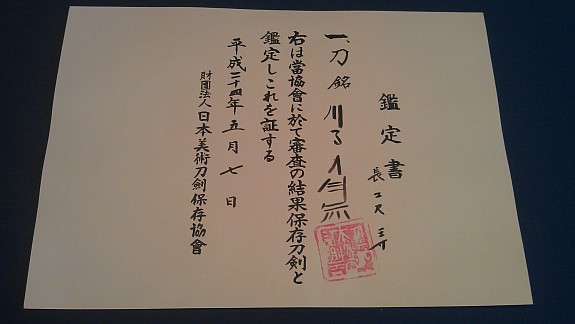 鑑定書
長 二尺 三寸
一、刀 銘
右は當協會に於て審査の結果保存刀剣と
鑑定しこれを証する
平成二十四年五月七日
財團法人 日本美術刀剣保存協會